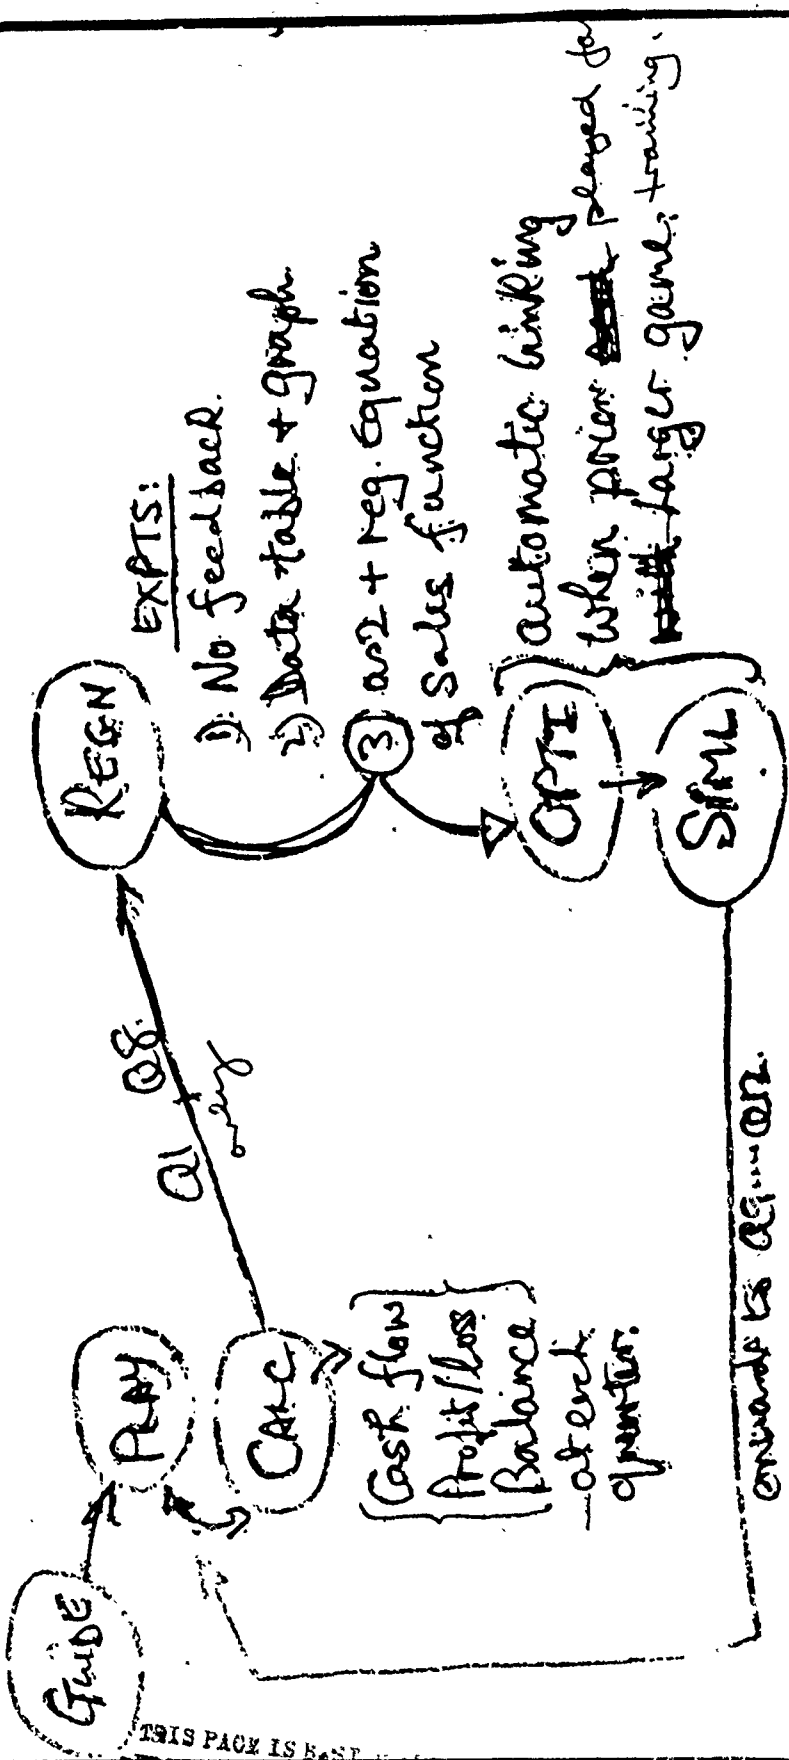 GUIDE
PLAY
CALC
Cash flow
Profit/loss
Balance
-at each
quarter.
Q1
Q8.
only
REGN
EXPTS:
1) No feedback.
2) Data table + graph.
3 as 2 + reg. Equation
of Sales function
OPTI
SIML
automatic linking
when prior played for
larger game, training.
onwards to Q9....Q12.
THIS PAGE IS BEST